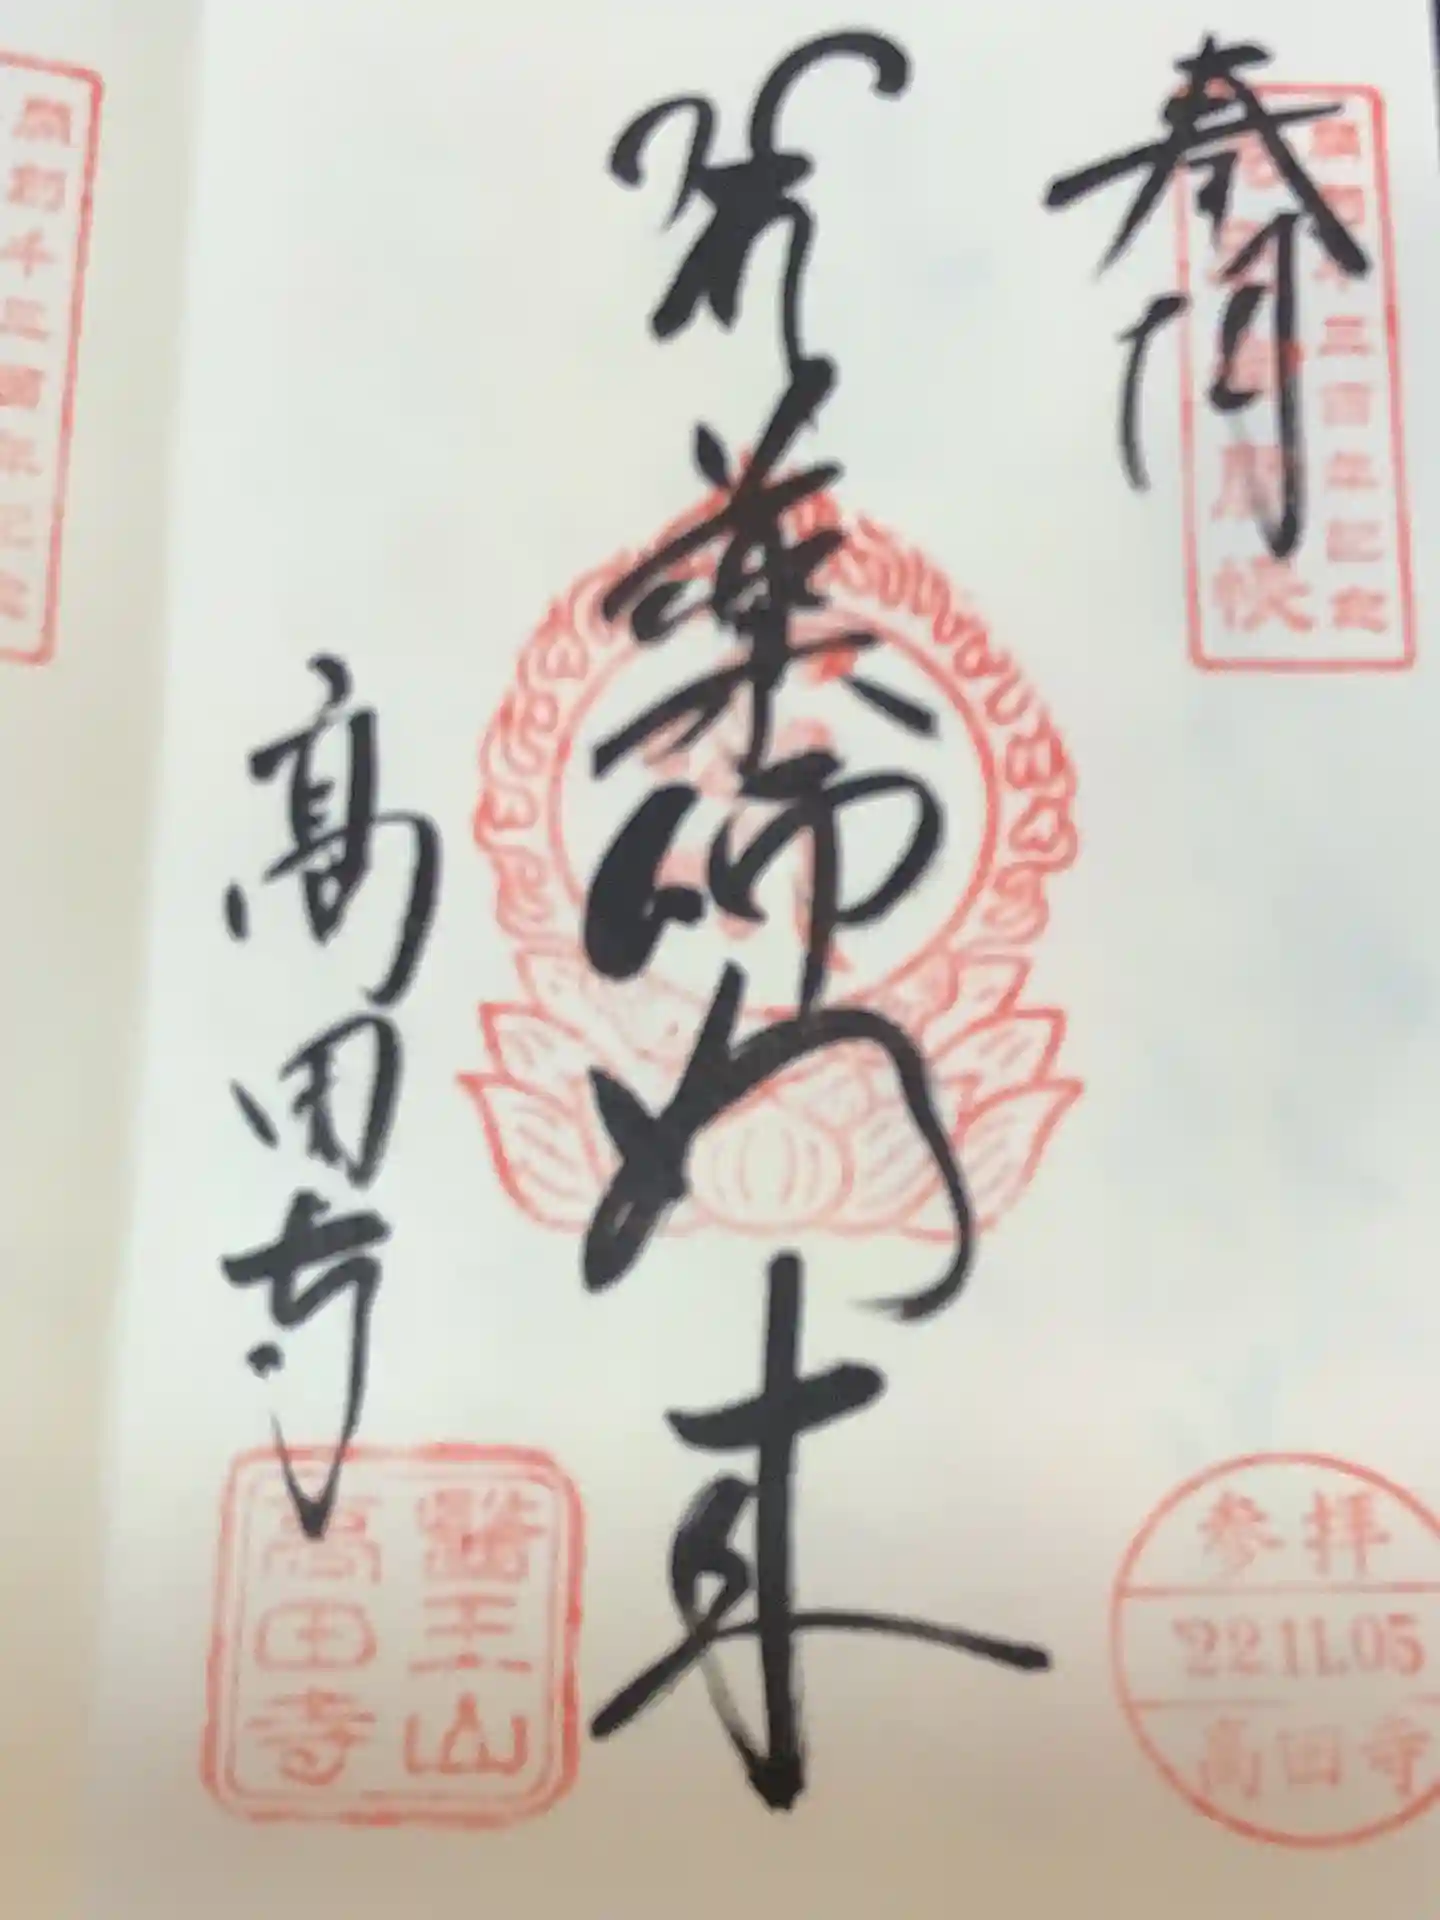 奉
開創千三百年記念
開帳
薬師如来
高田寺
醫王山
高田寺
参拝
'22.11.05
高田寺
開創千三百年記念